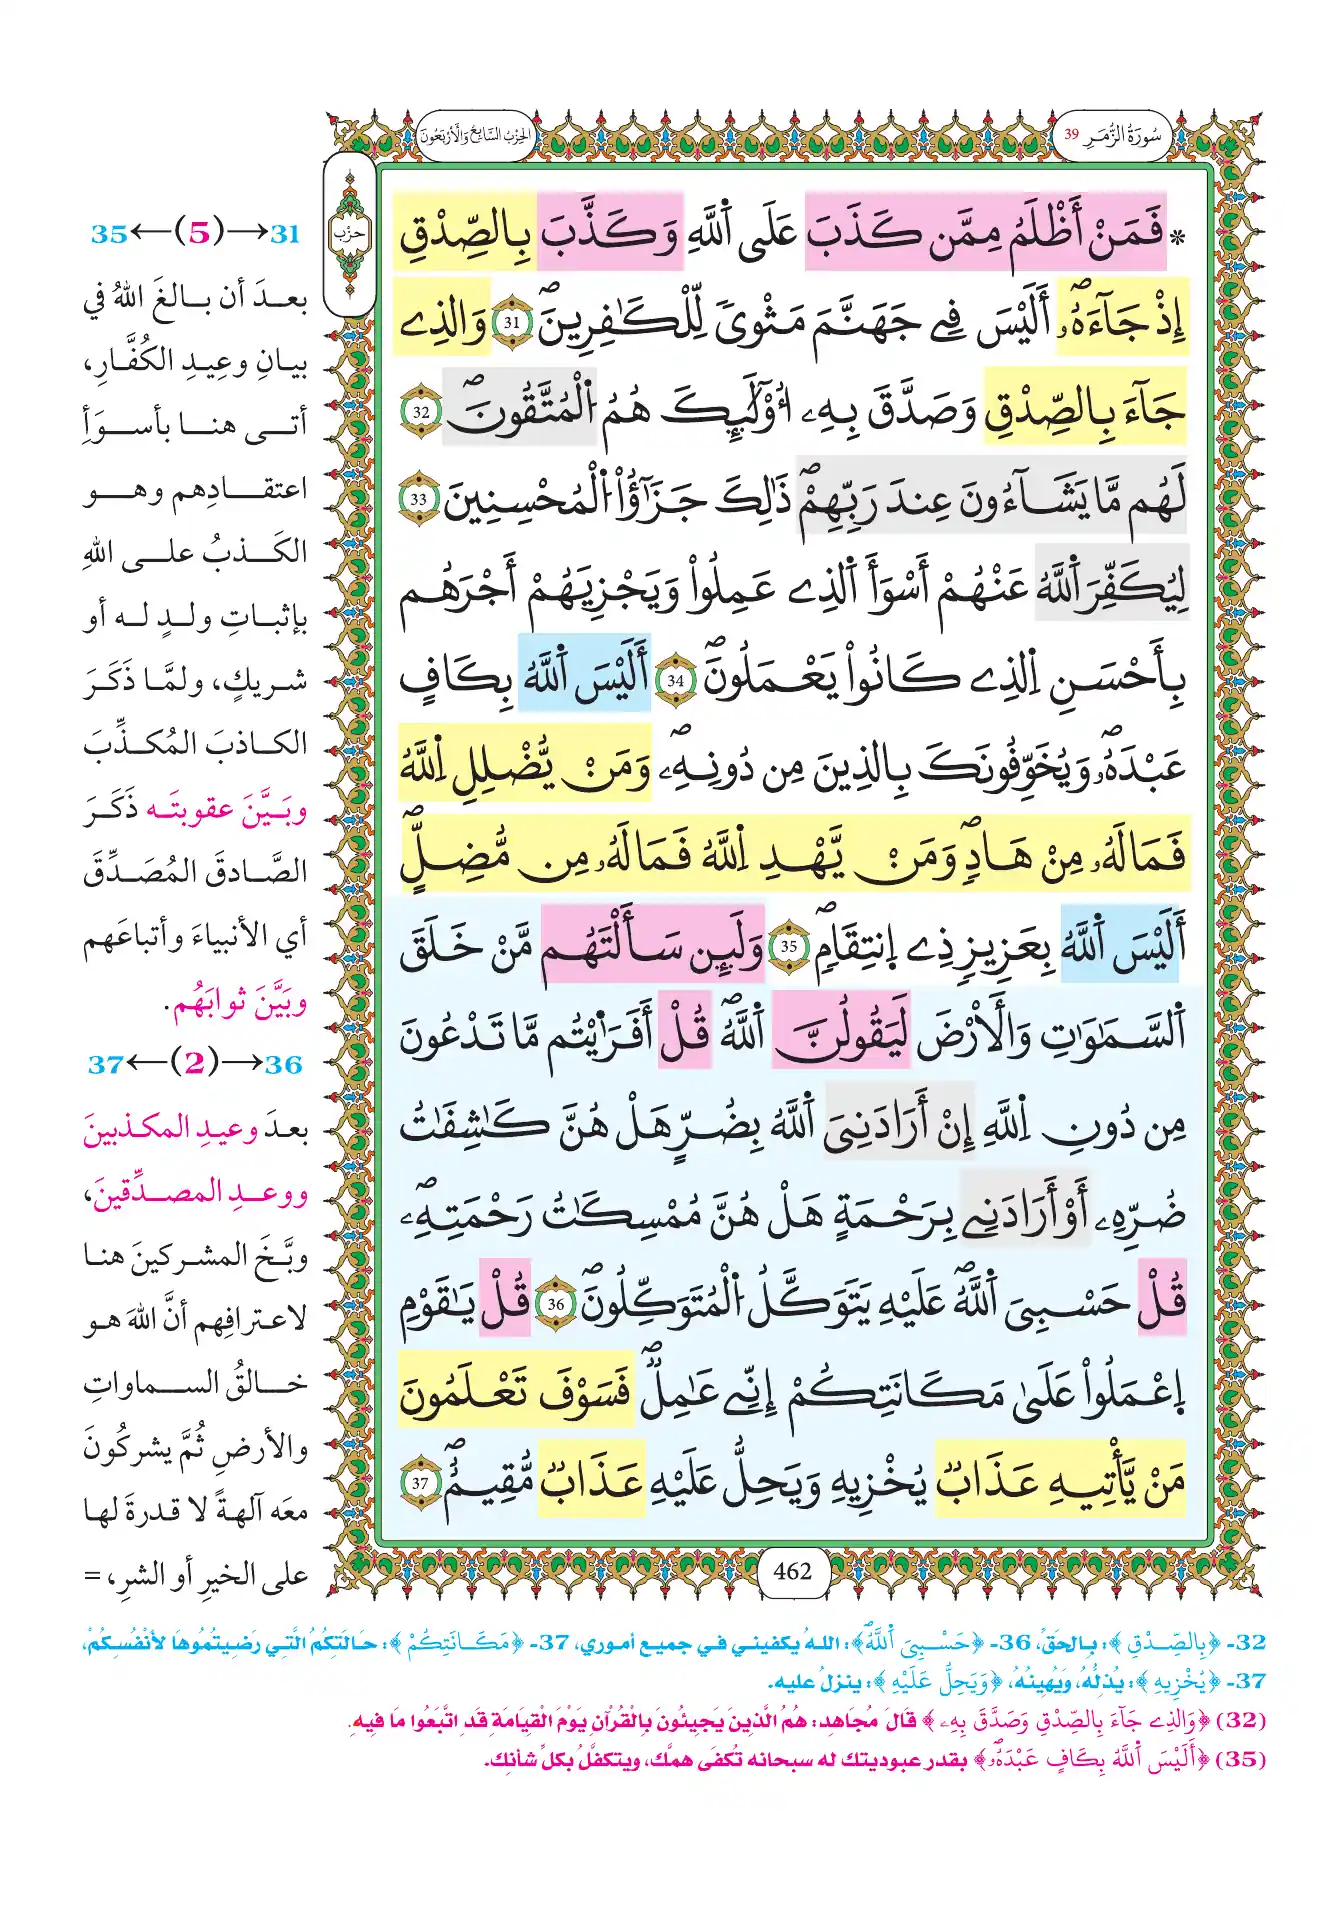 سُورَةُ الزُّمَرِ 39
الحِزْبُ السَّابِعُ وَالْأَرْبَعُونَ
حِزْب
* فَمَنْ أَظْلَمُ مِمَّن كَذَبَ عَلَى اَ۬للَّهِ وَكَذَّبَ بِالصِّدْقِ
إِذْ جَآءَهُۥٓۖ أَلَيْسَ فِے جَهَنَّمَ مَثْوىٗ لِّلْكَٰفِرِينَۖ 31 وَالذِے
جَآءَ بِالصِّدْقِ وَصَدَّقَ بِهِۦٓ أُوْلَٰٓئِكَ هُمُ اُ۬لْمُتَّقُونَۖ 32
لَهُم مَّا يَشَآءُونَ عِندَ رَبِّهِمْۖ ذَٰلِكَ جَزَٰٓؤُاْ اُ۬لْمُحْسِنِينَ 33
لِيُكَفِّرَ اَ۬للَّهُ عَنْهُمْ أَسْوَأَ اَ۬لذِے عَمِلُواْ وَيَجْزِيَهُمْ أَجْرَهُم
بِأَحْسَنِ اِ۬لذِے كَانُواْ يَعْمَلُونَۖ 34 أَلَيْسَ اَ۬للَّهُ بِكَافٍ
عَبْدَهُۥۖ وَيُخَوِّفُونَكَ بِالذِينَ مِن دُونِهِۦۖ وَمَنْ يُّضْلِلِ اِ۬للَّهُ
فَمَا لَهُۥ مِنْ هَادٖۖ وَمَنْ يَّهْدِ اِ۬للَّهُ فَمَا لَهُۥ مِن مُّضِلٍّۖ
أَلَيْسَ اَ۬للَّهُ بِعَزِيزٖ ذِے اِ۪نتِقَامٖۖ 35 وَلَئِن سَأَلْتَهُم مَّنْ خَلَقَ
اَ۬لسَّمَٰوَٰتِ وَالْأَرْضَ لَيَقُولُنَّ اَ۬للَّهُۖ قُلْ أَفَرَٰٓيْتُم مَّا تَدْعُونَ
مِن دُونِ اِ۬للَّهِ إِنْ أَرَادَنِيَ اَ۬للَّهُ بِضُرٍّ هَلْ هُنَّ كَٰشِفَٰتُ
ضُرِّهِۦٓ أَوْ أَرَادَنِے بِرَحْمَةٍ هَلْ هُنَّ مُمْسِكَٰتُ رَحْمَتِهِۦۖ
قُلْ حَسْبِيَ اَ۬للَّهُۖ عَلَيْهِ يَتَوَكَّلُ اُ۬لْمُتَوَكِّلُونَۖ 36 قُلْ يَٰقَوْمِ
اِ۪عْمَلُواْ عَلَىٰ مَكَانَتِكُمْ إِنِّے عَٰمِلٞۖ فَسَوْفَ تَعْلَمُونَ
مَنْ يَّأْتِيهِ عَذَابٞ يُخْزِيهِ وَيَحِلُّ عَلَيْهِ عَذَابٞ مُّقِيمٌۖ 37
462
31→(5)←35
بعدَ أن بالغَ اللهُ في
بيانِ وعِيدِ الكُفَّارِ،
أتى هنا بأسوَأِ
اعتقادِهم وهو
الكَذبُ على اللهِ
بإثباتِ ولدٍ له أو
شريكٍ، ولمَّا ذَكَرَ
الكاذبَ المُكذِّبَ
وبَيَّنَ عقوبتَه ذَكَرَ
الصَّادقَ المُصَدِّقَ
أي الأنبياءَ وأتباعَهم
وبَيَّنَ ثوابَهُم.
36→(2)←37
بعدَ وعيدِ المكذبينَ
ووعدِ المصدِّقينَ،
وبَّخَ المشركينَ هنا
لاعترافِهم أنَّ اللهَ هو
خالقُ السماواتِ
والأرضِ ثُمَّ يشركُونَ
معَه آلهةً لا قدرةَ لها
على الخيرِ أو الشرِ، =
32- ﴿بِالصِّدْقِ﴾: بِالحَقِّ، 36- ﴿حَسْبِيَ اَ۬للَّهُۖ﴾: اللهُ يكفيني في جميع أموري، 37- ﴿مَكَانَتِكُمْ﴾: حَالَتِكُمُ الَّتِي رَضِيتُمُوهَا لأنْفُسِكُمْ،
37- ﴿يُخْزِيهِ﴾: يُذِلُّهُ، وَيُهِينُهُ، ﴿وَيَحِلُّ عَلَيْهِ﴾: ينزلُ عليه.
(32) ﴿وَالذِے جَآءَ بِالصِّدْقِ وَصَدَّقَ بِهِۦٓ﴾ قَالَ مُجَاهِد: هُمُ الَّذِينَ يَجِيئُونَ بِالْقُرْآنِ يَوْمَ الْقِيَامَة قَد اتَّبَعُوا مَا فِيهِ.
(35) ﴿أَلَيْسَ اَ۬للَّهُ بِكَافٍ عَبْدَهُۥۖ﴾ بقدر عبوديتك له سبحانه تُكفَى همَّك، ويتكفَّلُ بكلِّ شأنِك.